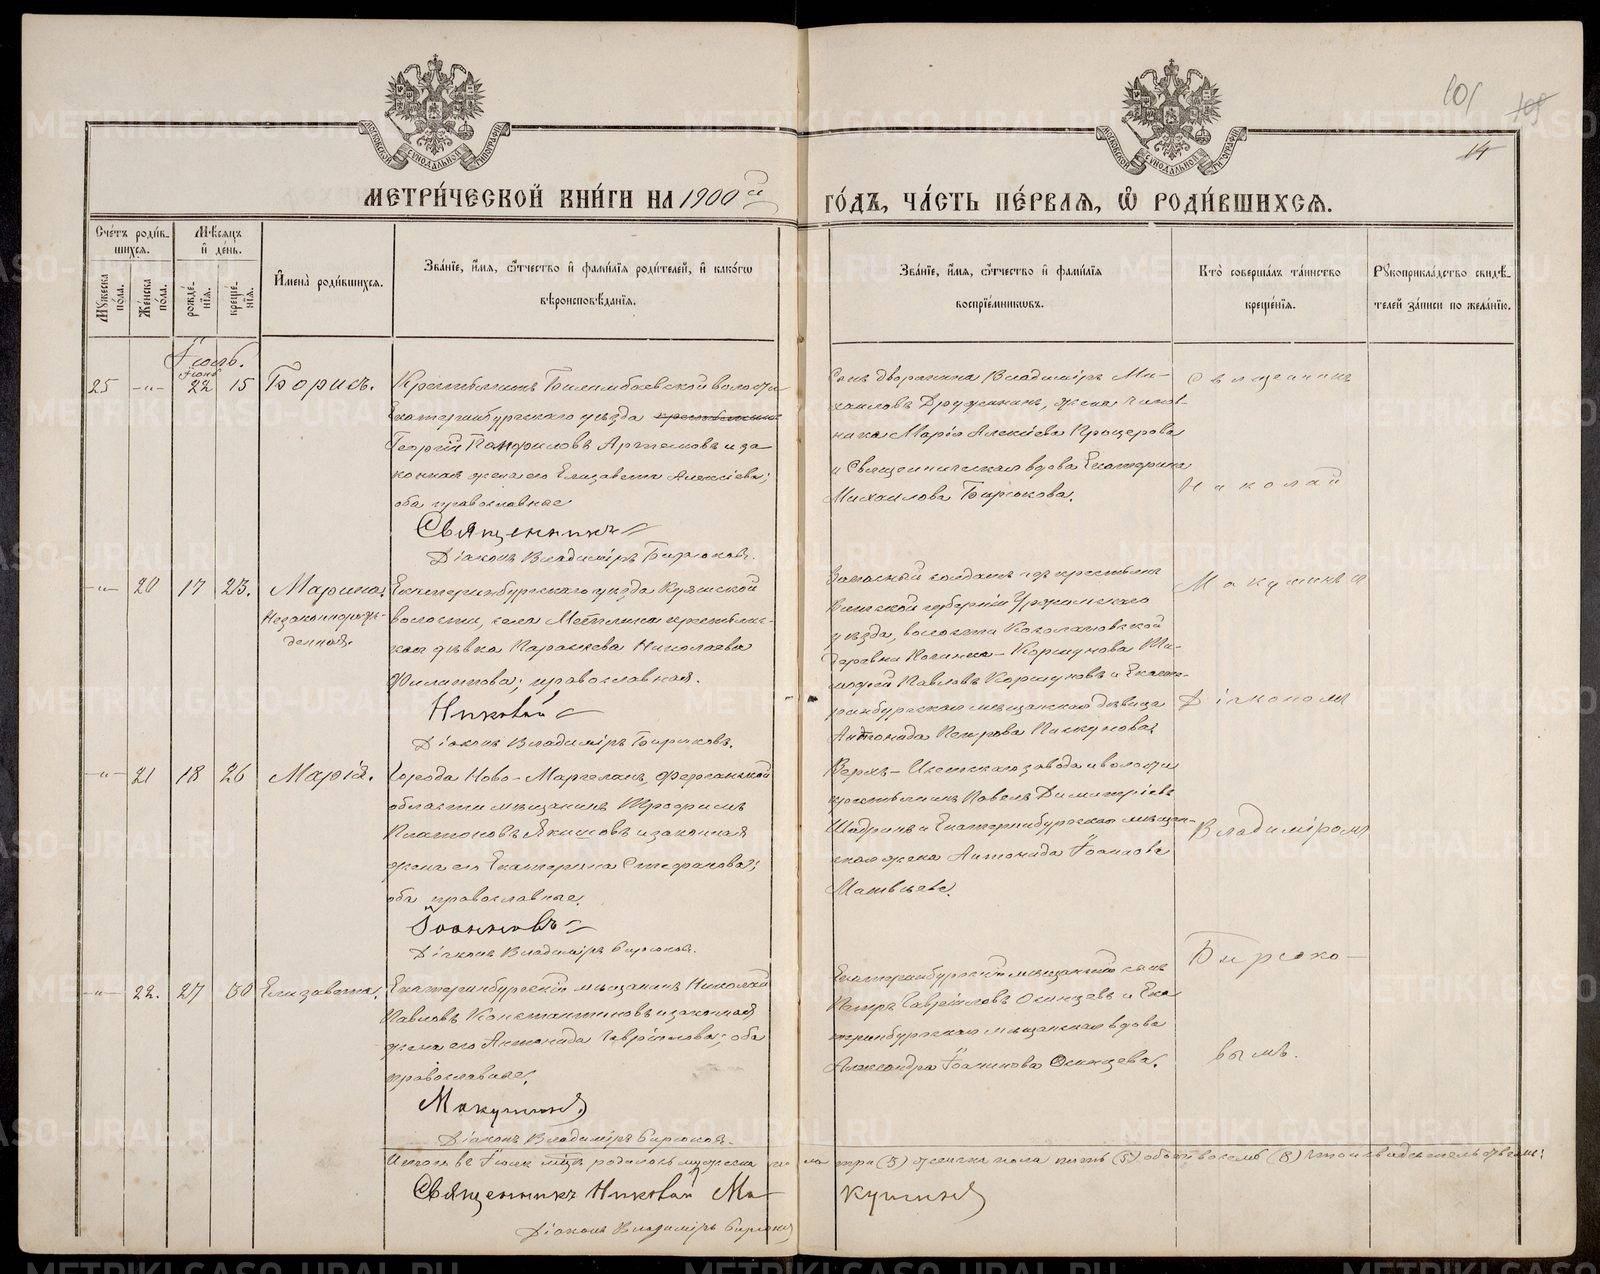 101
103
14
МОСКОВСКОЙ СУНОДАЛЬНОЙ ТИПОГРАФІИ
МОСКОВСКОЙ СУНОДАЛЬНОЙ ТИПОГРАФІИ
МЕТРИ́ЧЕСКОЙ КНИ́ГИ НА 1900й
ГО́ДЪ, ЧА́СТЬ ПЕ́РВАЯ, Ѽ РОДИ́ВШИХСЯ.
Сче́тъ роди́в-
шихся.
Мꙋжеска по́ла.
Же́нска по́ла.
Мѣ́сяцъ
и҆ де́нь.
рожде́-
нїя.
креще́-
нїя.
И҆мена̀ роди́вшихся.
Зва́нїе, и҆́мя, ѻ҆́тчество и҆ фами́лїя роди́телей, и҆ како́гѡ
вѣроисповѣ́данїя.
Зва́нїе, и҆́мя, ѻ҆́тчество и҆ фами́лїя
воспрїе́мниковъ.
Кто̀ соверша́лъ та́инство
креще́нїя.
Рꙋкоприкла́дство свидѣ́-
телей за́писи по жела́нїю.
Іюль.
25 -"- Іюня 22 15 Борисъ.
Крестьянинъ Билимбаевской волости
Екатеринбургскаго уѣзда крестьянинъ
Георгій Памфиловъ Артемовъ и за-
конная жена его Елизавета Алексіева;
оба православные
Священникъ
Діаконъ Владиміръ Бирюковъ.
Сынъ дворянина Владиміръ Ми-
хаиловъ Дружининъ, жена чинов-
ника Марія Алексіева Прощерова
и Священническая вдова Екатерина
Михаилова Бирюкова.
Священник
Николай
-"- 20 17 23. Марина.
Незаконнорож-
денная.
Екатеринбургскаго уѣзда Куяшской
волости, села Метлина крестьян-
ская дѣвка Параскева Николаева
Филиппова; православная.
Николай
Діаконъ Владиміръ Бирюковъ.
Запасный солдатъ изъ крестьянъ
Вятской губерніи Уржумскаго
уѣзда, волости
деревни Коршунова Ти-
мофей Павловъ Коршуновъ и Екате-
ринбургская мѣщанская дѣвица
Антонида Петрова Пискунова
Макушинъ и
Діакономъ
-"- 21 18 26 Марія.
Города Ново-Маргелана, Ферганской
области мѣщанинъ Трофимъ
Платоновъ Якимовъ и законная
жена его Екатерина Стефанова;
оба православные.
Іоанновъ
Діаконъ Владиміръ Бирюковъ.
Верхъ-Исетскаго завода и волости
крестьянинъ Павелъ Димитріевъ
Шадринъ и Екатеринбургская мѣщан-
ская жена Антонида Іоаннова
Матвѣева.
Владиміромъ
-"- 22. 27 30 Елизавета.
Екатеринбургскій мѣщанинъ Николай
Павловъ Константиновъ и законная
жена его Антонида Гавріилова; оба
православные.
Макушинъ
Діаконъ Владиміръ Бирюковъ.
Екатеринбургскій мѣщанскій сынъ
Петръ Гавріиловъ Осинцевъ и Ека-
теринбургская мѣщанская вдова
Александра Іоаннова Осинцева.
Бирюко-
вымъ.
Итого въ Іюлѣ мцѣ родилось мужеска пола три (3) женска пола пять (5) обоего восемь (8) въ томъ и свидѣтельствуемъ:
Священникъ Николай Макушинъ
Діаконъ Владиміръ Бирюковъ
METRIKI.GASO-URAL.RU